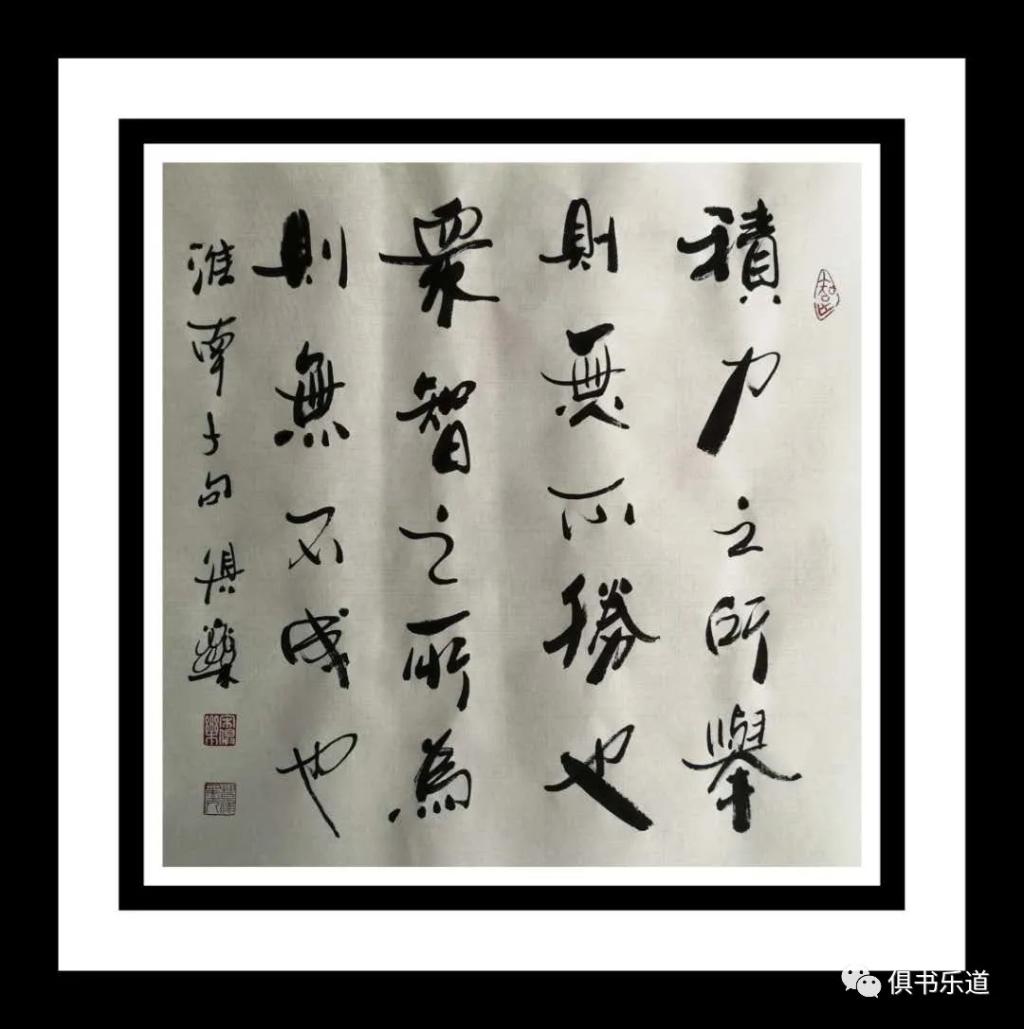 積力之所舉
則無不勝也
眾智之所為
則無不成也
淮南子句 俱樂
俱书乐道